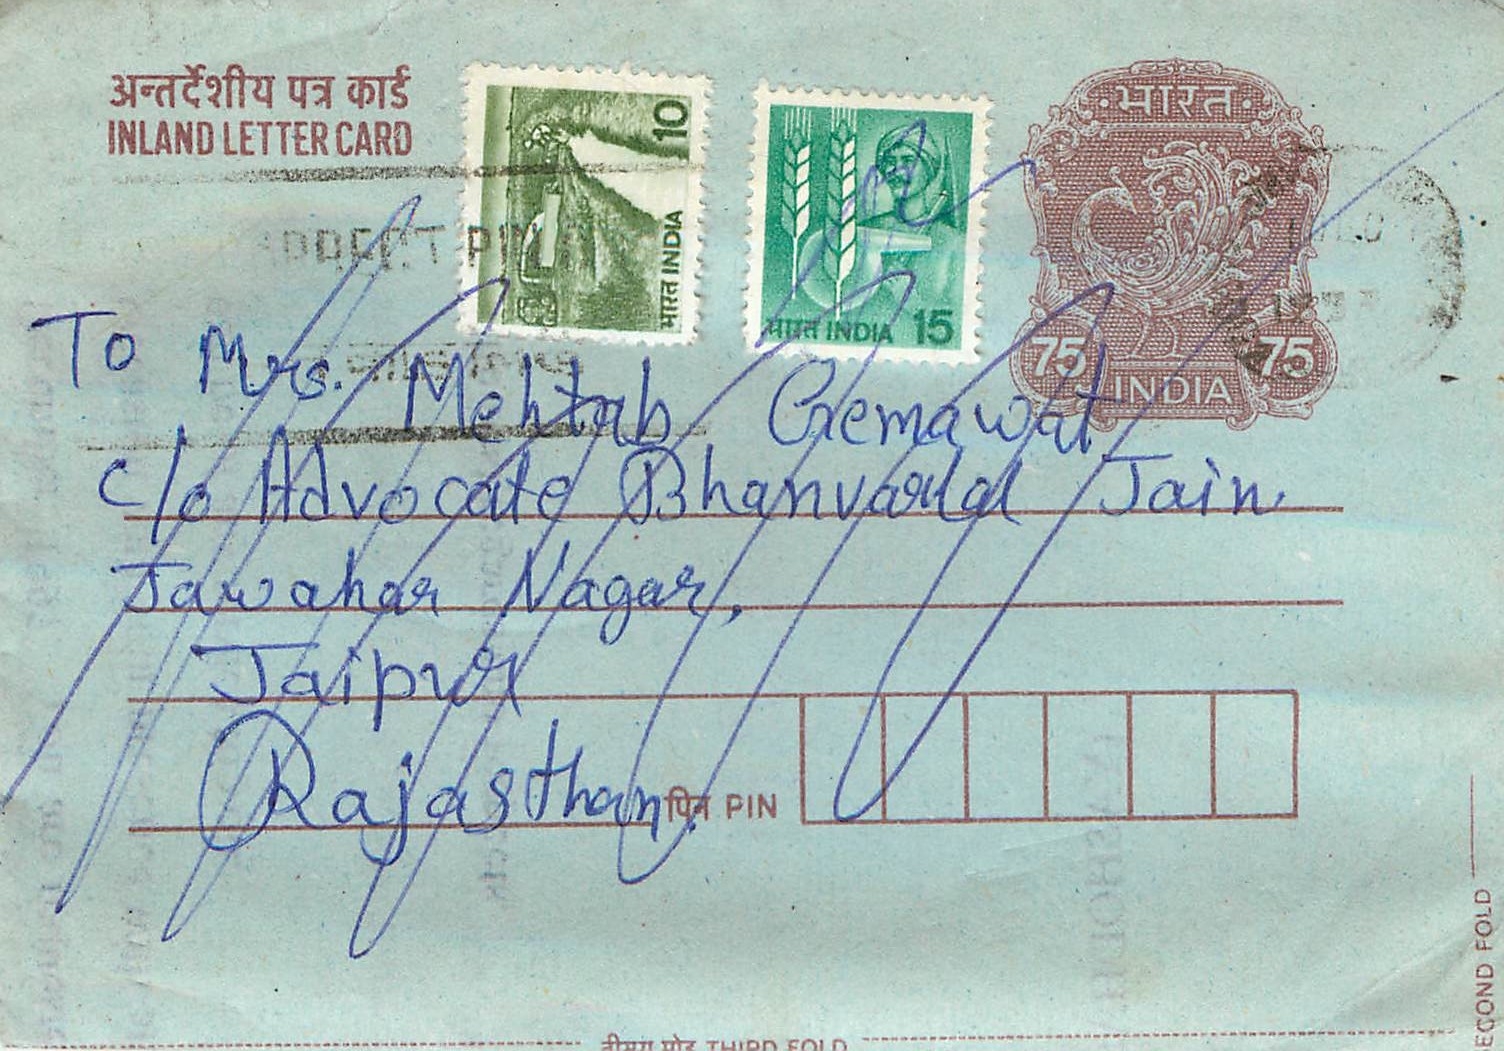 अन्तर्देशीय पत्र कार्ड
INLAND LETTER CARD
10
भारत INDIA
भारत INDIA 15
भारत
75 75
INDIA
To Mrs. Mehtab Gemawat
c/o Advocate Bhanvarlal Jain
Jawahar Nagar,
Jaipur
Rajasthan.
पिन PIN
SECOND FOLD
तीसरा मोड़ THIRD FOLD